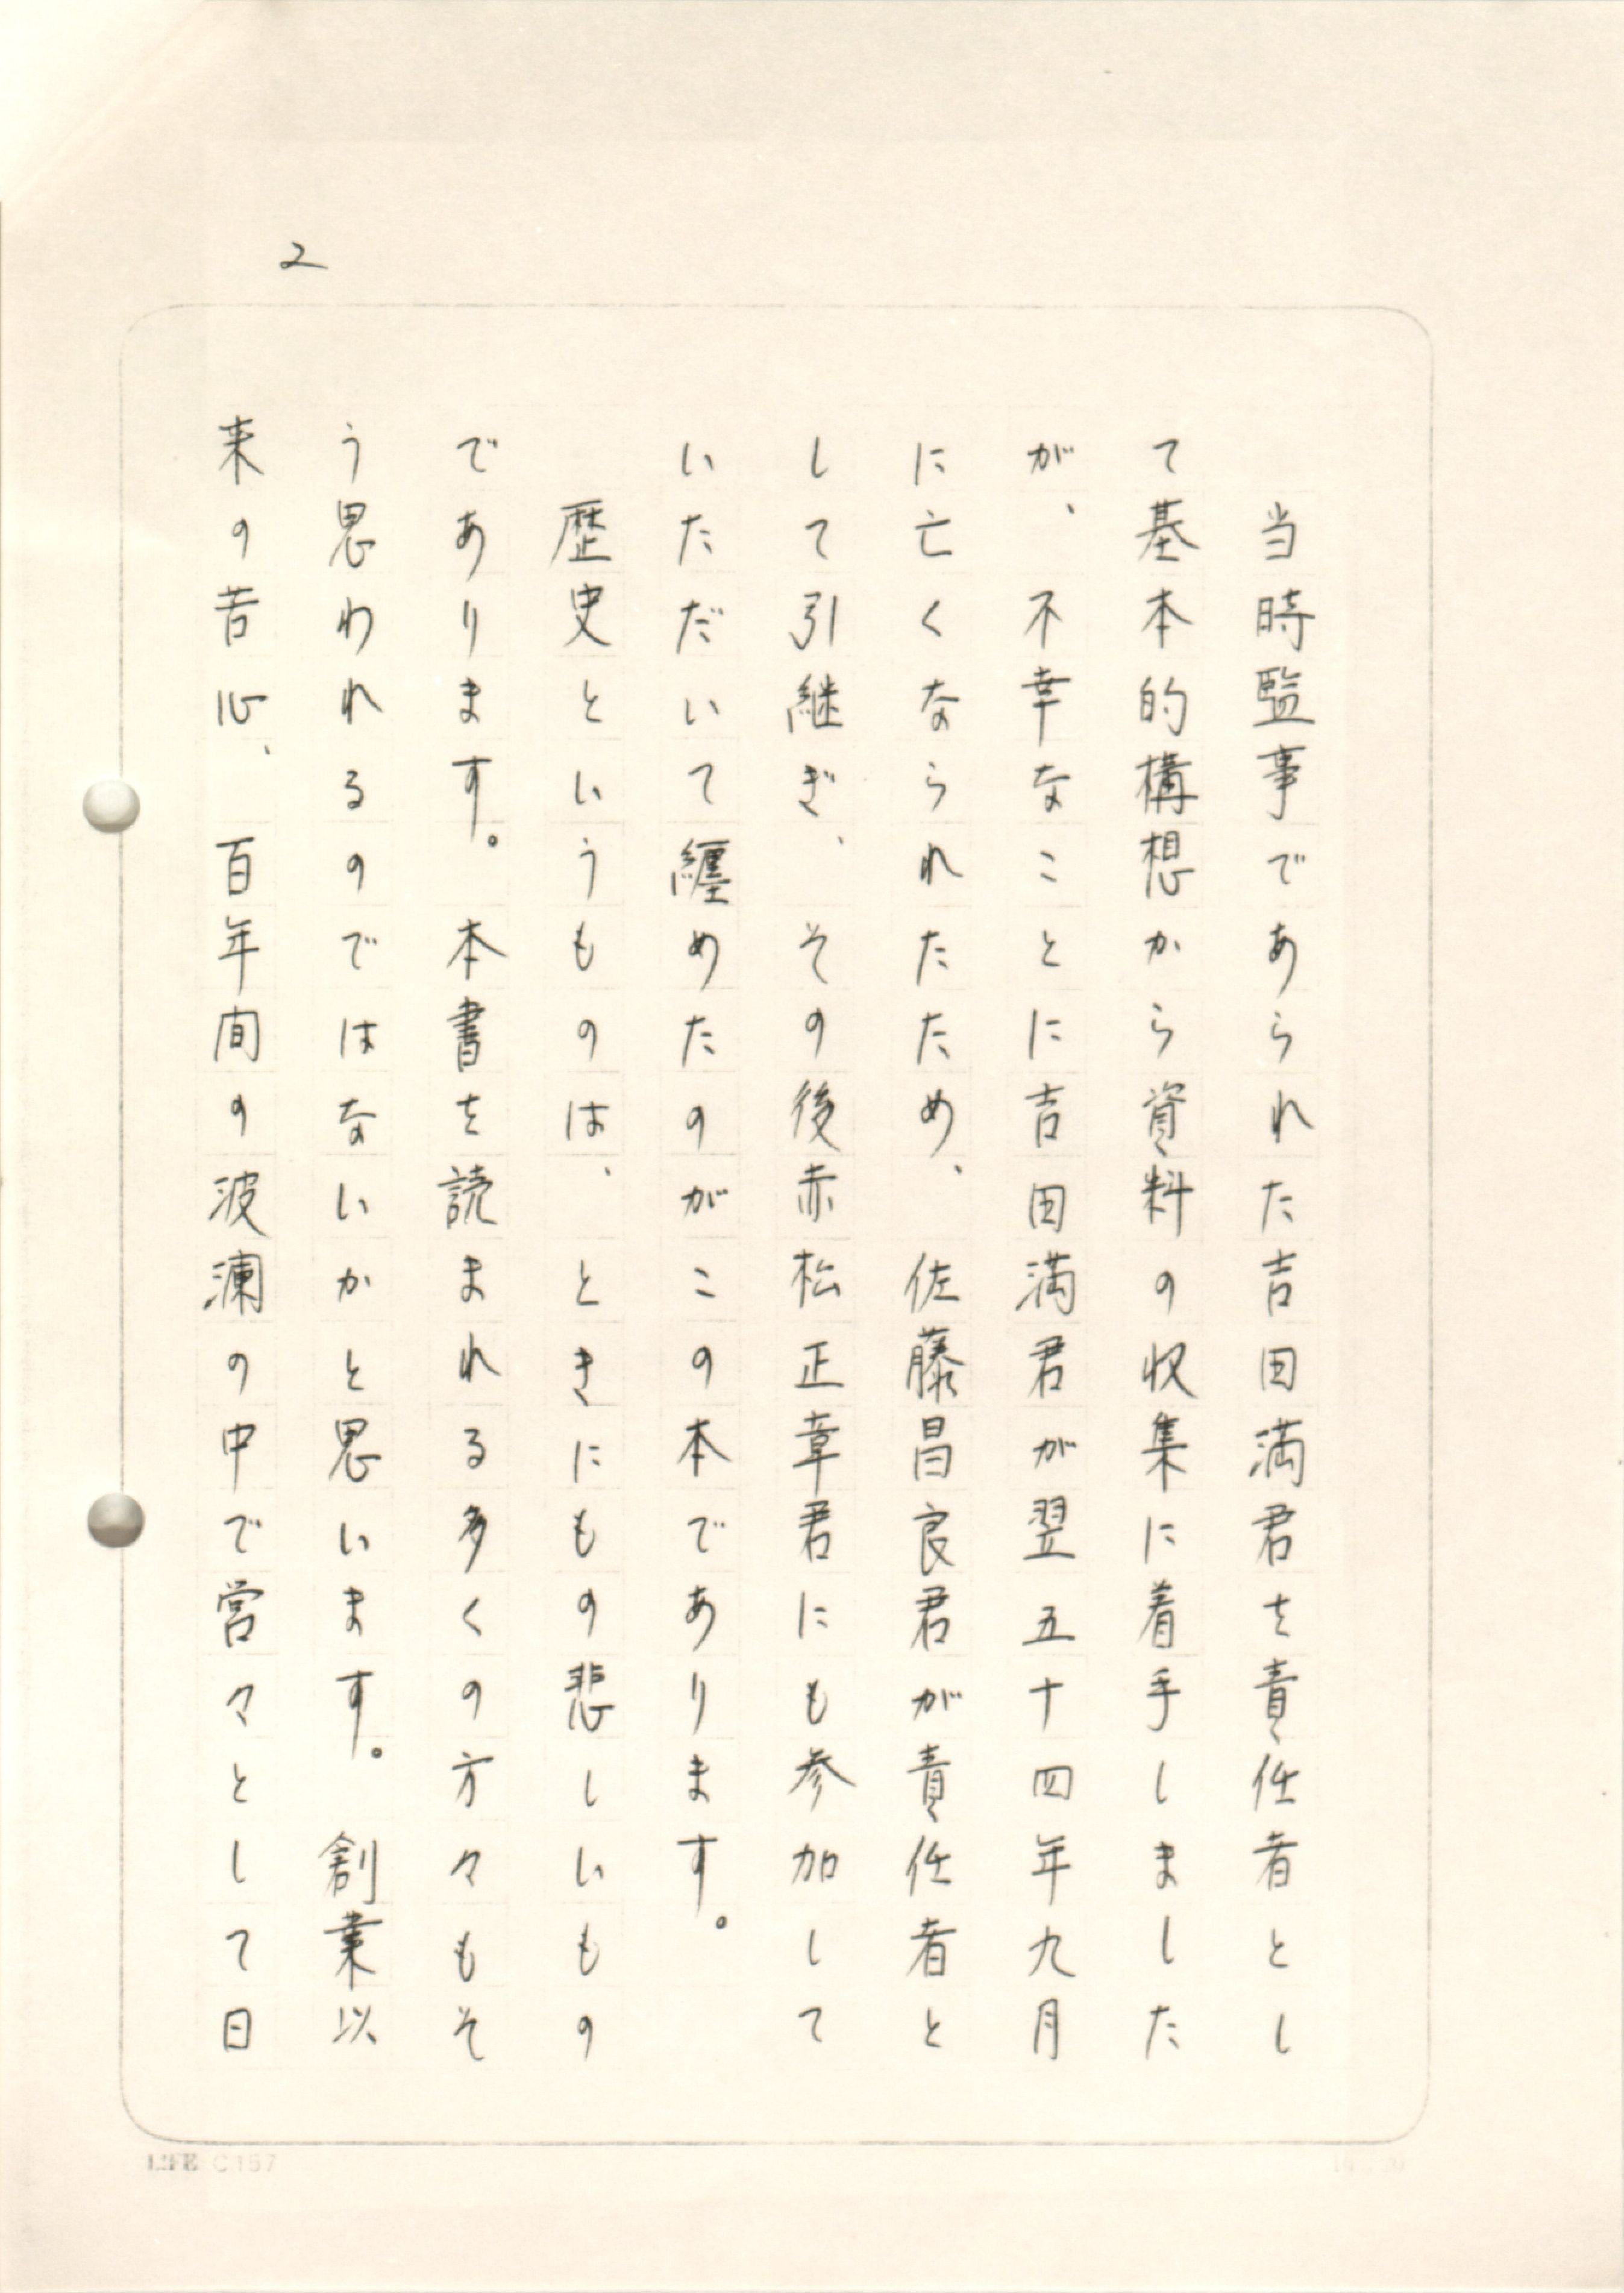 2
当時監事であられた吉田満君を責任者とし
て基本的構想から資料の収集に着手しました
が、不幸なことに吉田満君が翌五十四年九月
に亡くなられたため、佐藤昌良君が責任者と
して引継ぎ、その後赤松正章君にも参加して
いただいて纏めたのがこの本であります。
歴史というものは、ときにもの悲しいもの
であります。本書を読まれる多くの方々もそ
う思われるのではないかと思います。創業以
来の苦心、百年間の波瀾の中で営々として日
LIFE C157